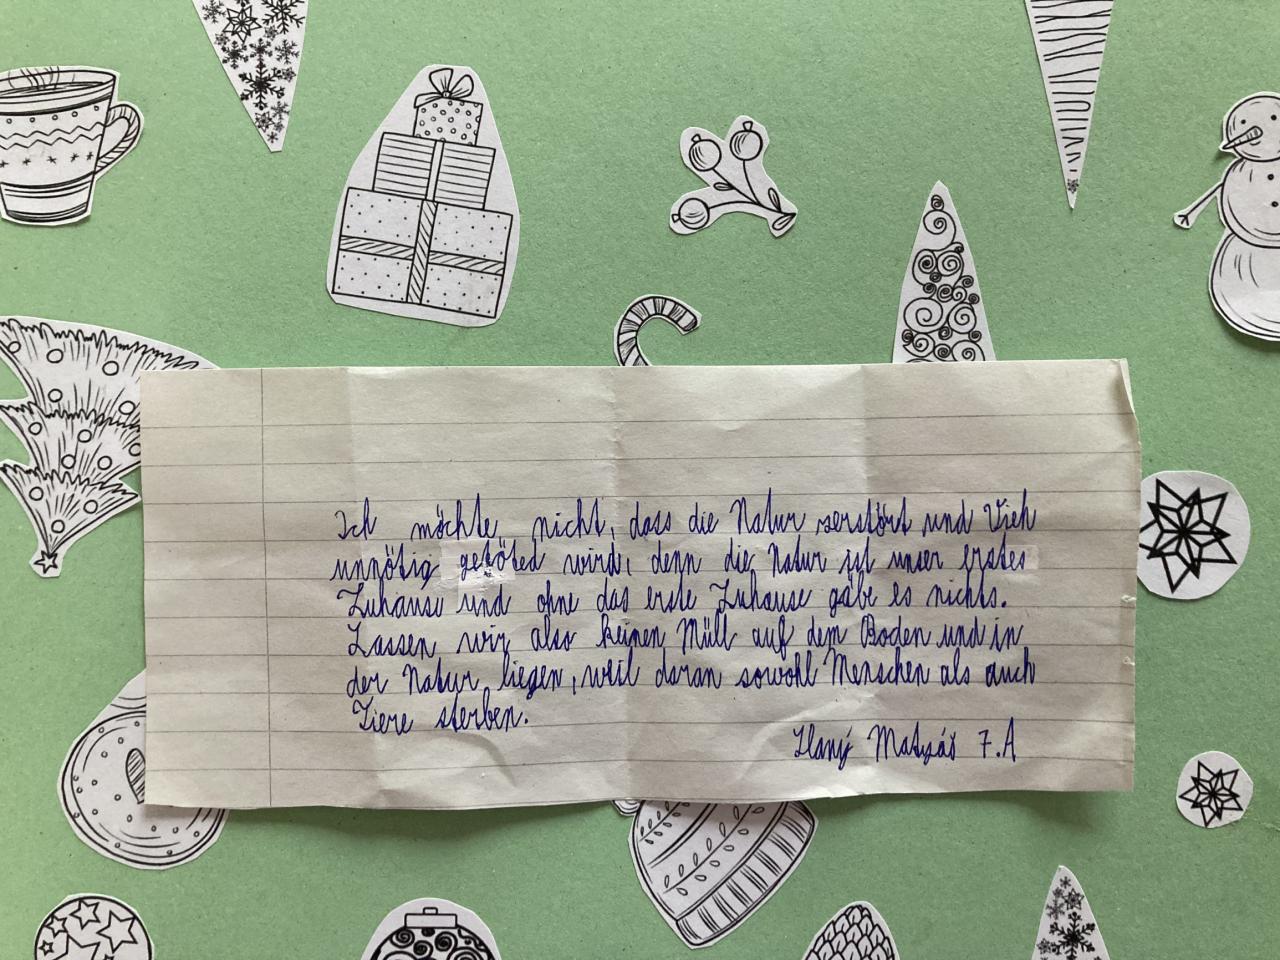 Ich möchte nicht, dass die Natur zerstört und Vieh
unnötig getöted wird, denn die Natur ist unser erstes
Zuhause und ohne das erste Zuhause gäbe es nichts.
Lassen wir also keinen Müll auf dem Boden und in
der Natur liegen, weil daran sowohl Menschen als auch
Tiere sterben.
Matyáš 7.A